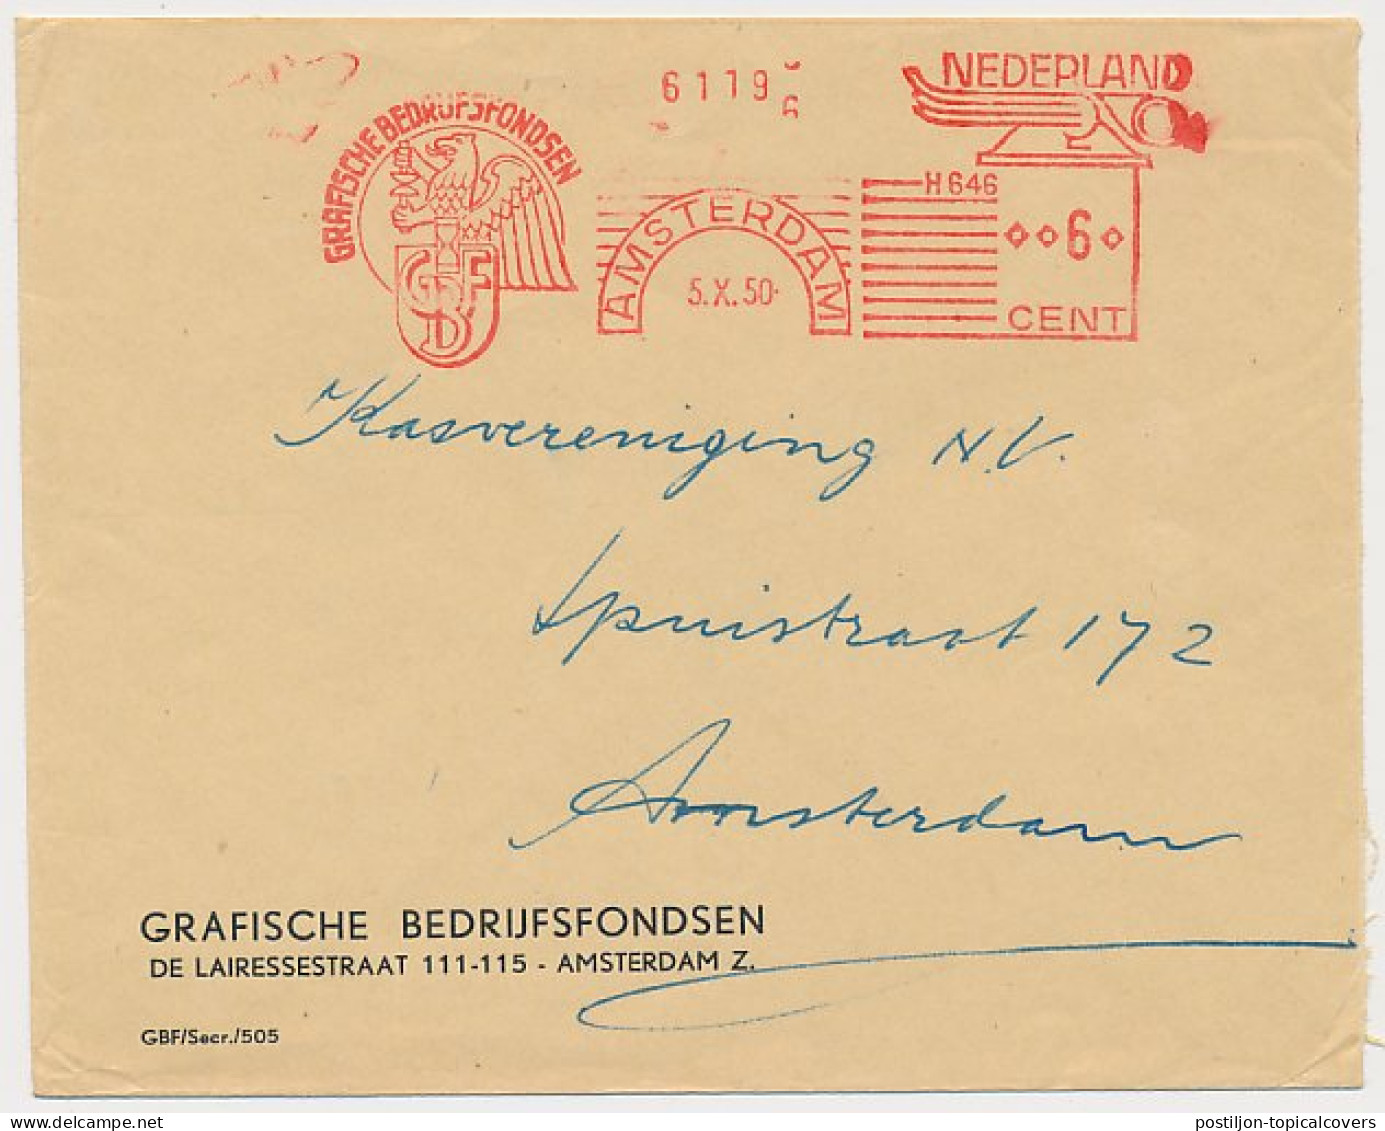 GRAFISCHE BEDRIJFSFONDSEN
GBF
6119
AMSTERDAM
5.X.50
NEDERLAND
H646
6
CENT
Kasvereniging N.V.
Spuistraat 172
Amsterdam
GRAFISCHE BEDRIJFSFONDSEN
DE LAIRESSESTRAAT 111-115 - AMSTERDAM Z.
GBF/Secr./505
postiljon-topicalcovers